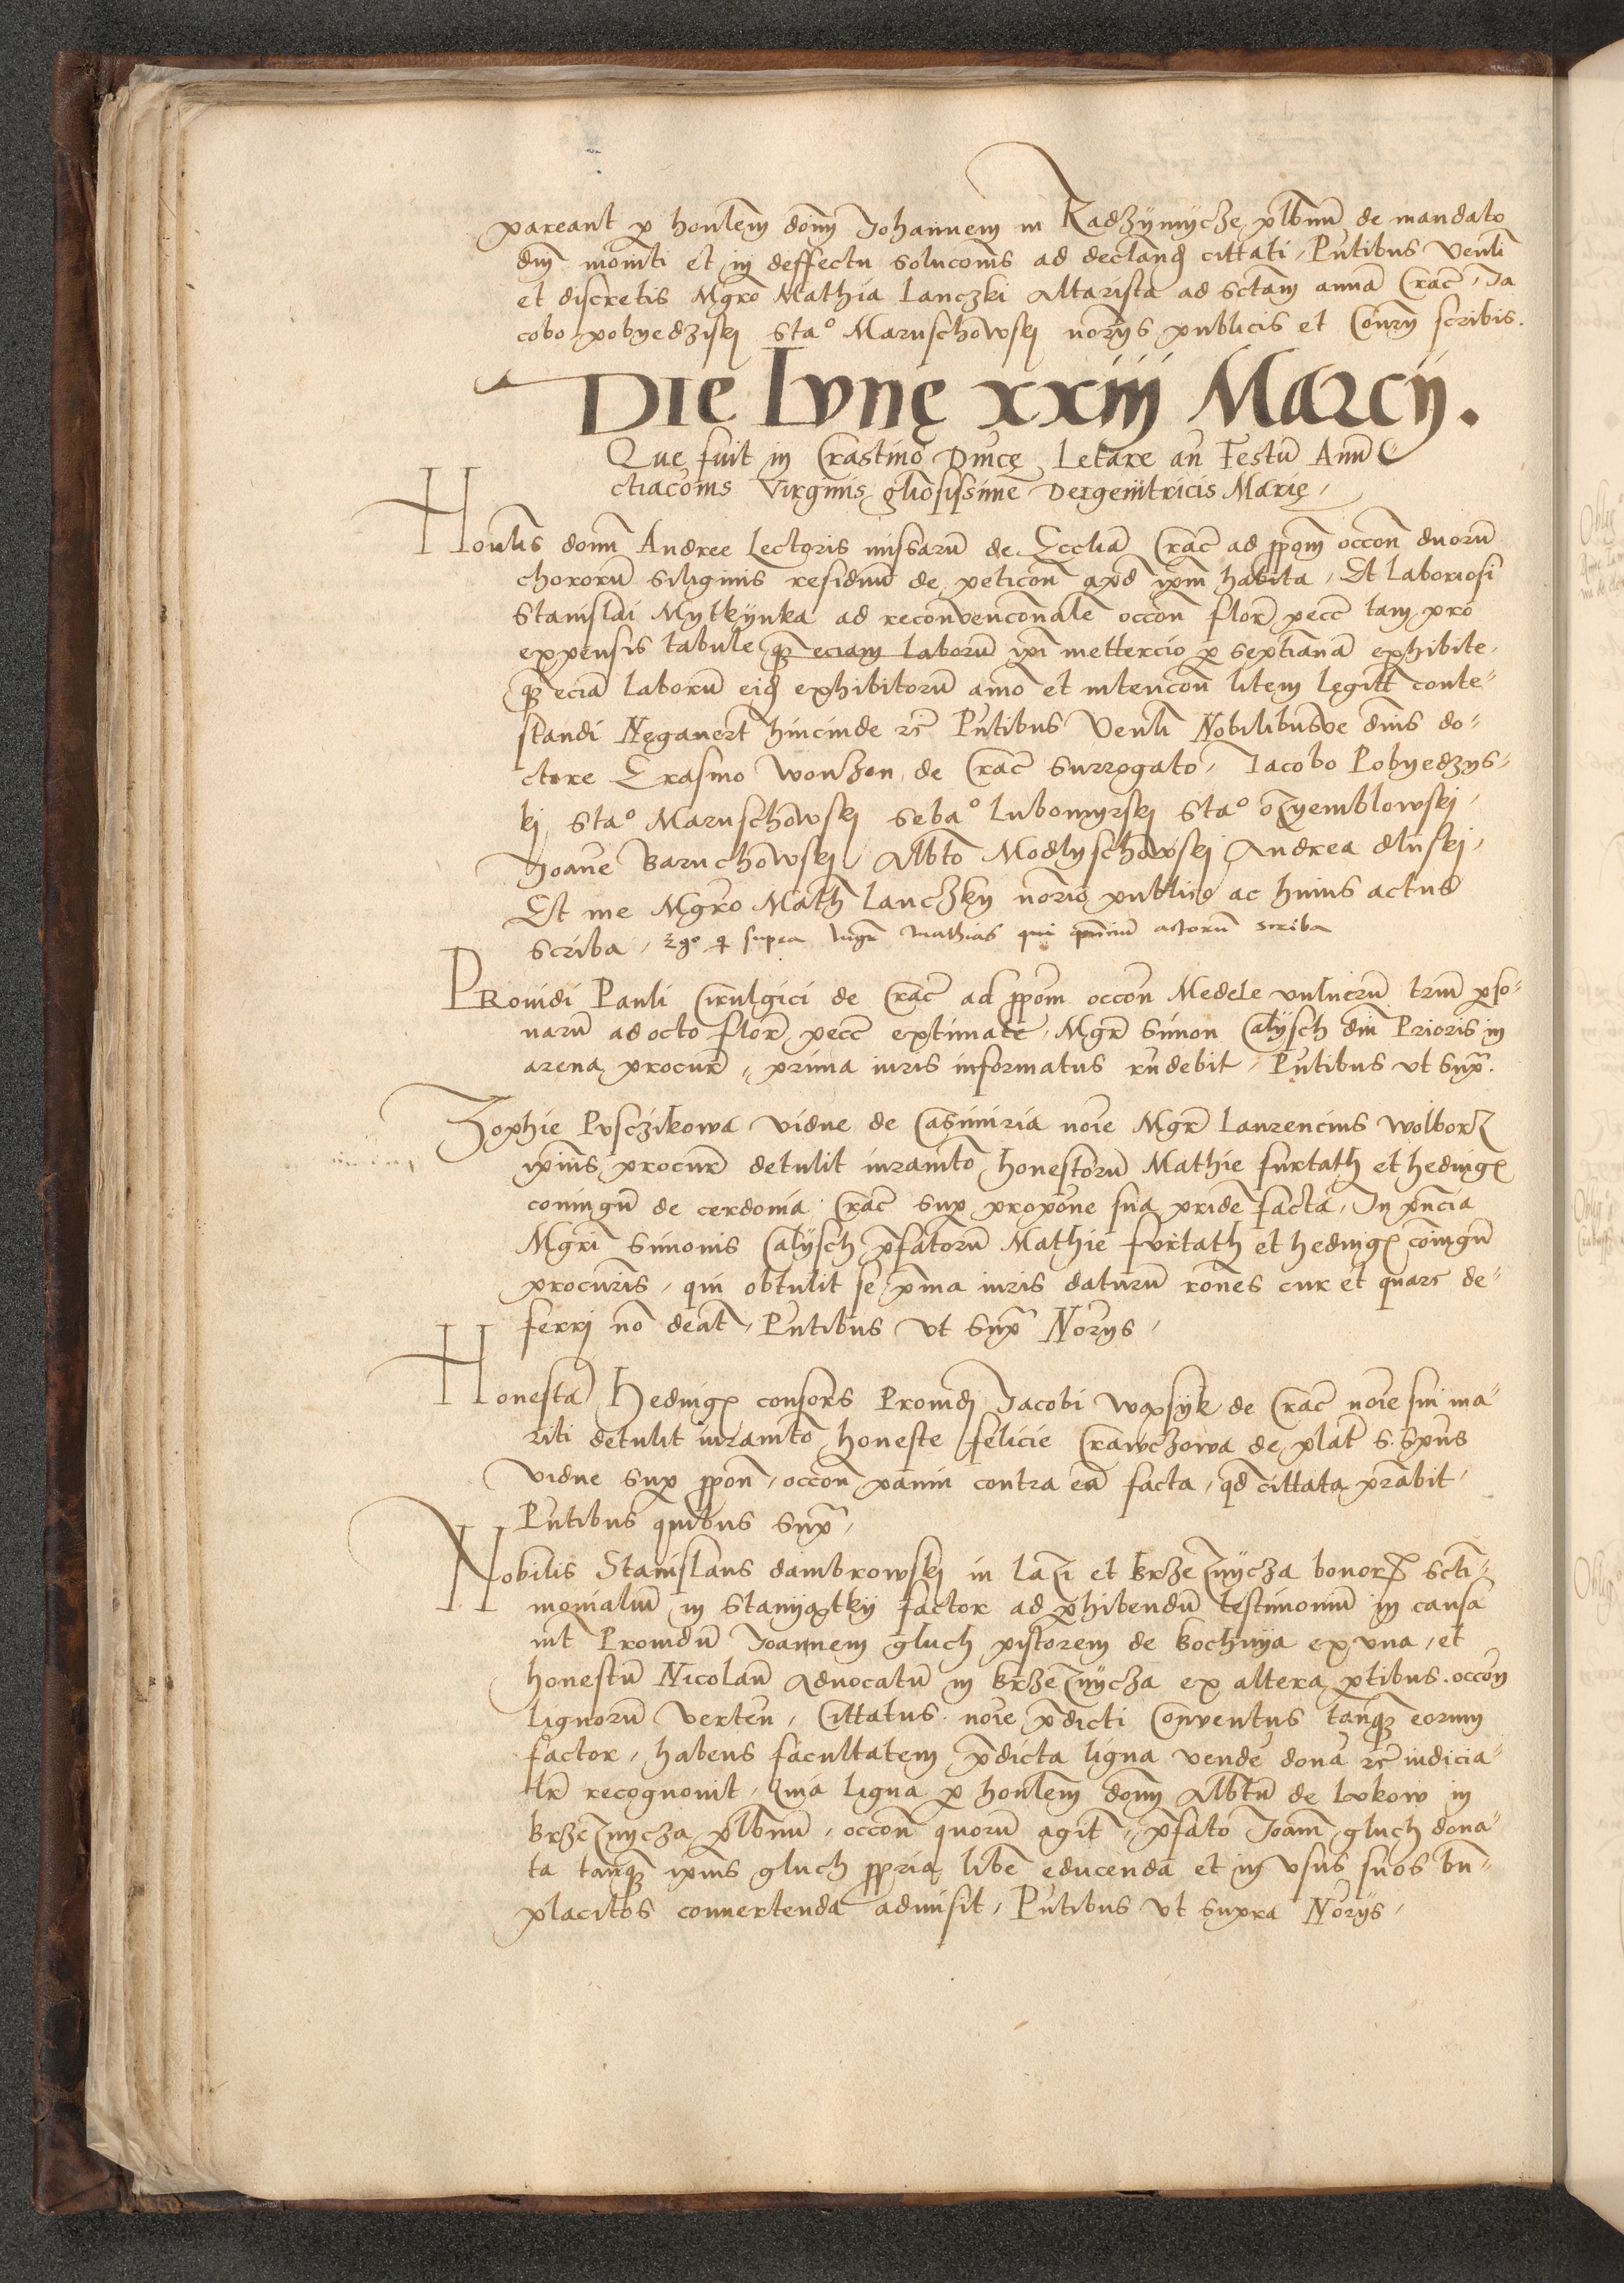 pareant p honlem dom̄ Johannem in Radzÿmÿcze plbnū de mandato
dni moniti et in deffectu soluconis ad declanđ cittati, Pn̄tibus Venli
et discretis Mgro Mathia Lanczki Altarista ad Sctam annā Crac̄, Ja
cobo pobyedziskj Sta° Maruschowskj nor̄ys publicis et Con̄ry scribis.
Die lvnę xxiij Marcij.
Que fuit in Crastino Dn̄icę Letare an̄ Festū Annū
ctiacōnis Virginis glīosissimē Deigenitricis Marię,
Honlis domī Andree Lectoris missarū de Ecclīa Crac̄ ad ppōm occōn duorū
chororū siliginis residuū de peticōn apd ipm̄ habita, Et Laboriosi
Stanislai Mytkÿnka ad reconvenconalē occōn flor̄ pecc̄ tam pro
expensis tabule q̄ eciam laborū ipi mettercio p septīanā exhibite,
q̄ eciā laborū eiđ exhibitorū aīo et intencōn litem legitt̄ conte-
standi Negauer̄t hincinde rc̄ Pn̄tibus Venli Nobilibusve dnīs do-
ctore Erasmo wonzon de Crac̄ Surrogato, Jacobo Pobyedzys-
kj, Sta° Maruschowskj Seba° Lubomyrskj Sta° Ozyemblowskj,
Joan̄e Baruchowskj, Albto Modlyschowskj Andrea dluskj,
Et me Mgro Math̄ Lanczky norīo publico ac huius actus
scriba, Ego q supra Mgr̄ Mathias qui pn̄ciū actorū scriba
Prouidi Pauli Cirulgici de Crac̄ ad ppōm occōn Medele vulnerū triū pso-
narū ad octo flor̄ pecc̄ extimate, Mgr̄ Simon Calÿsch dnī Prioris in
arena procur̄, prima iuris informatus rn̄debit, Pn̄tibus vt Supr̄.
Zophie Pusczikowa vidue de Casimiria noīe Mgr̄ Laurencius Wolborz
ipius procur̄ detulit iuramto honestorū Mathie furtath et hedwigę
coniugū de cerdonia Crac̄ Sup propōne sua pride facta, In pn̄cia
Mgri Simonis Calÿsch p̄fatorū Mathie furtath et hedwigę coniugū
procuris, qui obtulit se p̄ma iuris daturū rōnes cur et quare de-
ferrj nō deat̄, Pn̄tibus vt Supr̄ Norys,
Honesta Hedwigę consors Prouidj Jacobi wąsÿk de Crac̄ noīe sui ma-
riti detulit iuramto honeste felicie Crawczowa de plat̄ S. Spūs
vidue Sup ppōn, occōn panni contra eā facta, qđ cittata prābit,
Pn̄tibus quibus Supr̄,
Nobilis Stanislaus dambrowskj in lazi et Brzeznÿcza bonorꝝ Scti-
monialiū in Stanÿątkÿ factor ad phibendū testimoniū in causa
int̄ Prouidū Joannem gluch pistorem de Bochnÿa ex vna, et
honestū Nicolaū Aduocatū in Brzeznÿcza ex altera ptibus. occōn
lignorū verten̄, Cittatus noīe p̄dicti Conventus tanq̄ eorum
factor, habens facultatem p̄dicta ligna vendē donā rc̄ iudicia-
lr̄ recognouit, Quia ligna p honlem dom̄ Albtū de Lukow in
Brzeznÿcza plbnū, occōn quorū agit̄, p̄fato Joann̄ gluch dona-
ta tanq̄ ipius gluch ppria libē educenda et in vsus suos bn̄-
placitos conuertenda admisit, Pn̄tibus vt Supra Norÿs,